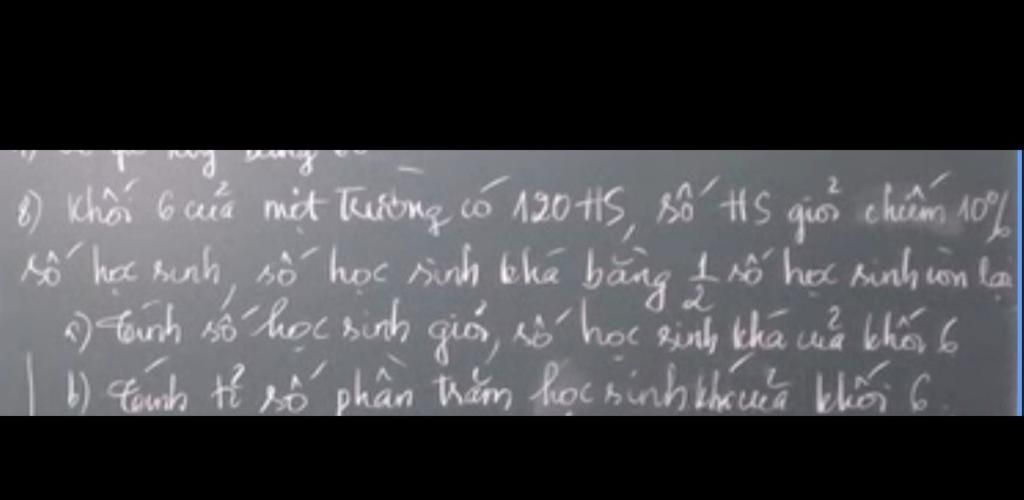 8) Khối 6 của một Trường có 120 HS, số HS giỏi chiếm 10%
số học sinh, số học sinh khá bằng 1/2 số học sinh còn lại
a) Tính số học sinh giỏi, số học sinh khá của khối 6
b) Tính tỉ số phần trăm học sinh khá của khối 6.